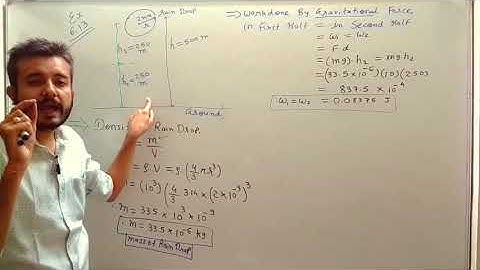 Ex
6.13
2mm
Rain Drop
h₁ = 250 m
h = 500 m
h₂ = 250 m
Ground
⇒ Density Rain Drop
= m/V
= ρ.V = ρ(4/3 πr³)
= (10³)(4/3 3.14 × (2×10⁻³)³
m = 33.5 × 10³ × 10⁻⁹
∴ m = 33.5 × 10⁻⁶ kg
Mass of Rain Drop
⇒ Workdone By Gravitational Force
in First Half = in Second Half
= W₁ = W₂
= F d
= (mg).h₁ = mg.h₂
= (33.5 × 10⁻⁶)(10)(250)
= 837.5 × 10⁻⁴
W₁ = W₂ = 0.08375 J